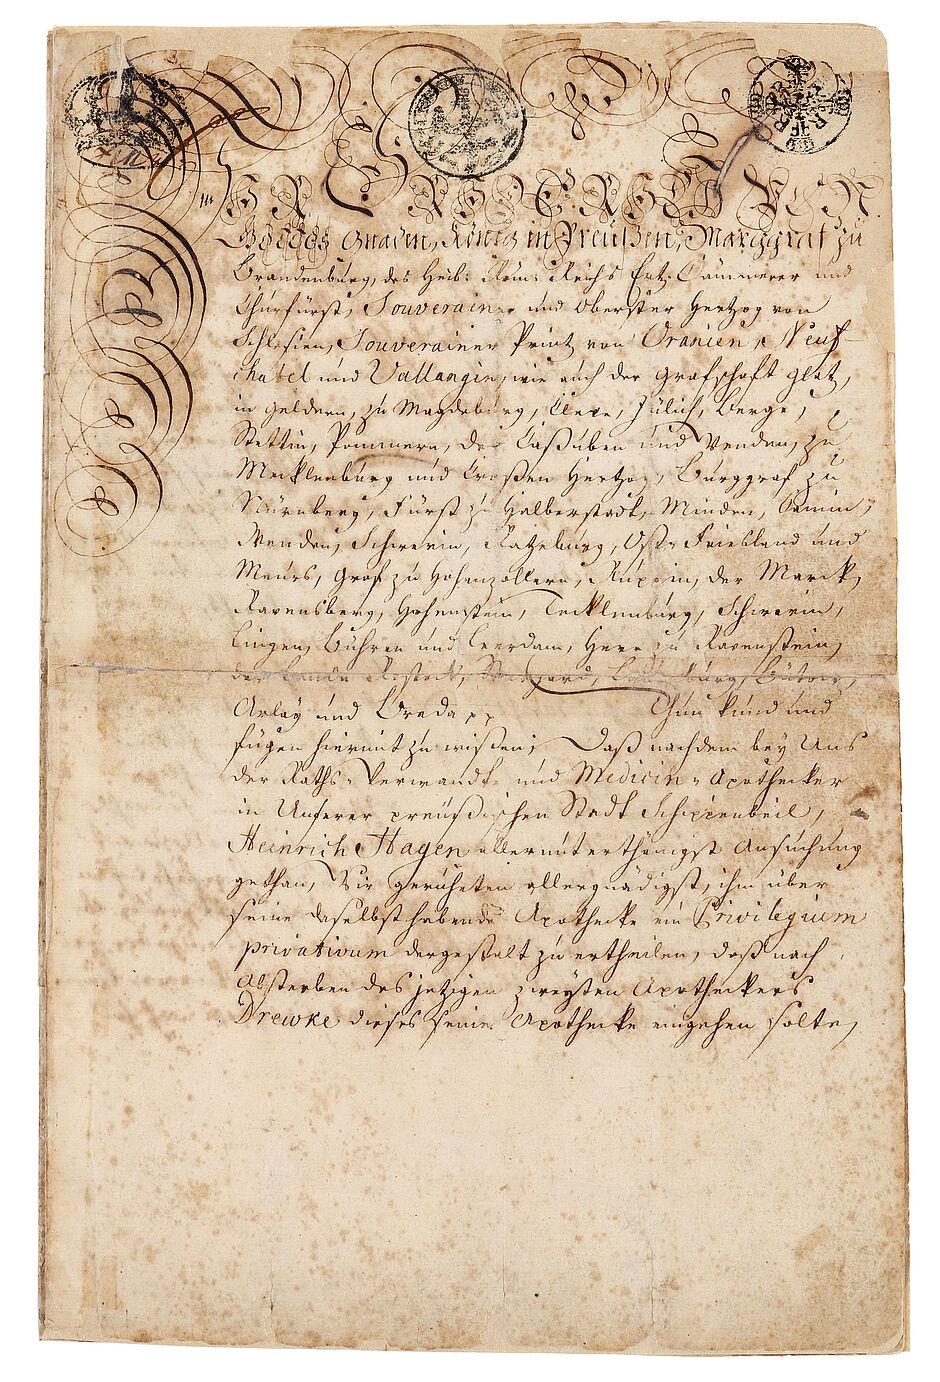 Wir Friderich von
Gottes Gnaden, König in Preußen, Marggraf zu
Brandenburg, des Heil: Röm: Reichs Ertz-Cämmerer und
Churfürst, Souverainer und Oberster Hertzog von
Schlesien, Souverainer Printz von Oranien, Neuf-
chatel und Vallangin, wie auch der Grafschaft Glatz,
in Geldern, zu Magdeburg, Cleve, Jülich, Berge,
Stettin, Pommern, der Caßuben und Wenden, zu
Mecklenburg und Croßen Hertzog, Burggraf zu
Nürnberg, Fürst zu Halberstadt, Minden, Camin,
Wenden, Schwerin, Ratzeburg, Ost-Friesland und
Meurs, Graf zu Hohenzollern, Ruppin, der Marck,
Ravensberg, Hohenstein, Tecklenburg, Schwerin,
Lingen, Bühren und Leerdam, Herr zu Ravenstein,
der Lande Rostock, Stargard, Lauenburg, Bütow,
Arlay und Breda pp Thun kund und
fügen hiermit zu wißen; Daß nachdem bey Uns
der Raths-Verwandte und Medicin-Apothecker
in Unserer preußischen Stadt Schippenbeil,
Heinrich Hagen allerunterthänigst Ansuchung
gethan, Wir geruheten allergnädigst, ihm über
seine daselbst habende Apothecke ein Privilegium
privativum dergestalt zu ertheilen, daß nach
Absterben des jetzigen zweyten Apotheckers
Drewke dieses seine Apothecke eingehen solte,